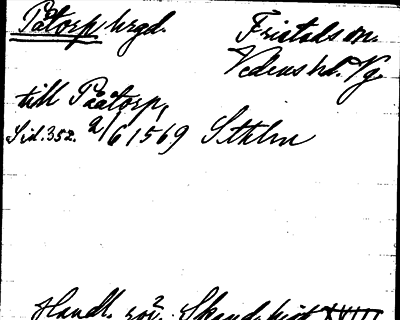 Påtorp, hrgd. Fristads sn.
Vedens hd. Vg.
till Påatorp,
Sid. 352. 9/6 1569 Sthlm
Handl. rör. Skand. hist XVIII